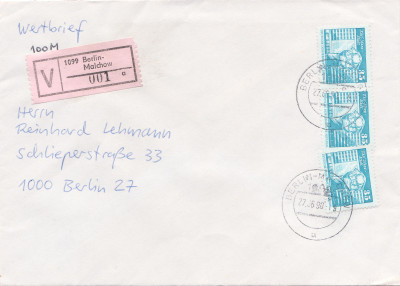 Wertbrief
100M
V
1099 Berlin-
Malchow
001 a
Herrn
Reinhard Lehmann
Schlieperstraße 33
1000 Berlin 27
35
35
35
BERLIN-M
27.-6.90
a